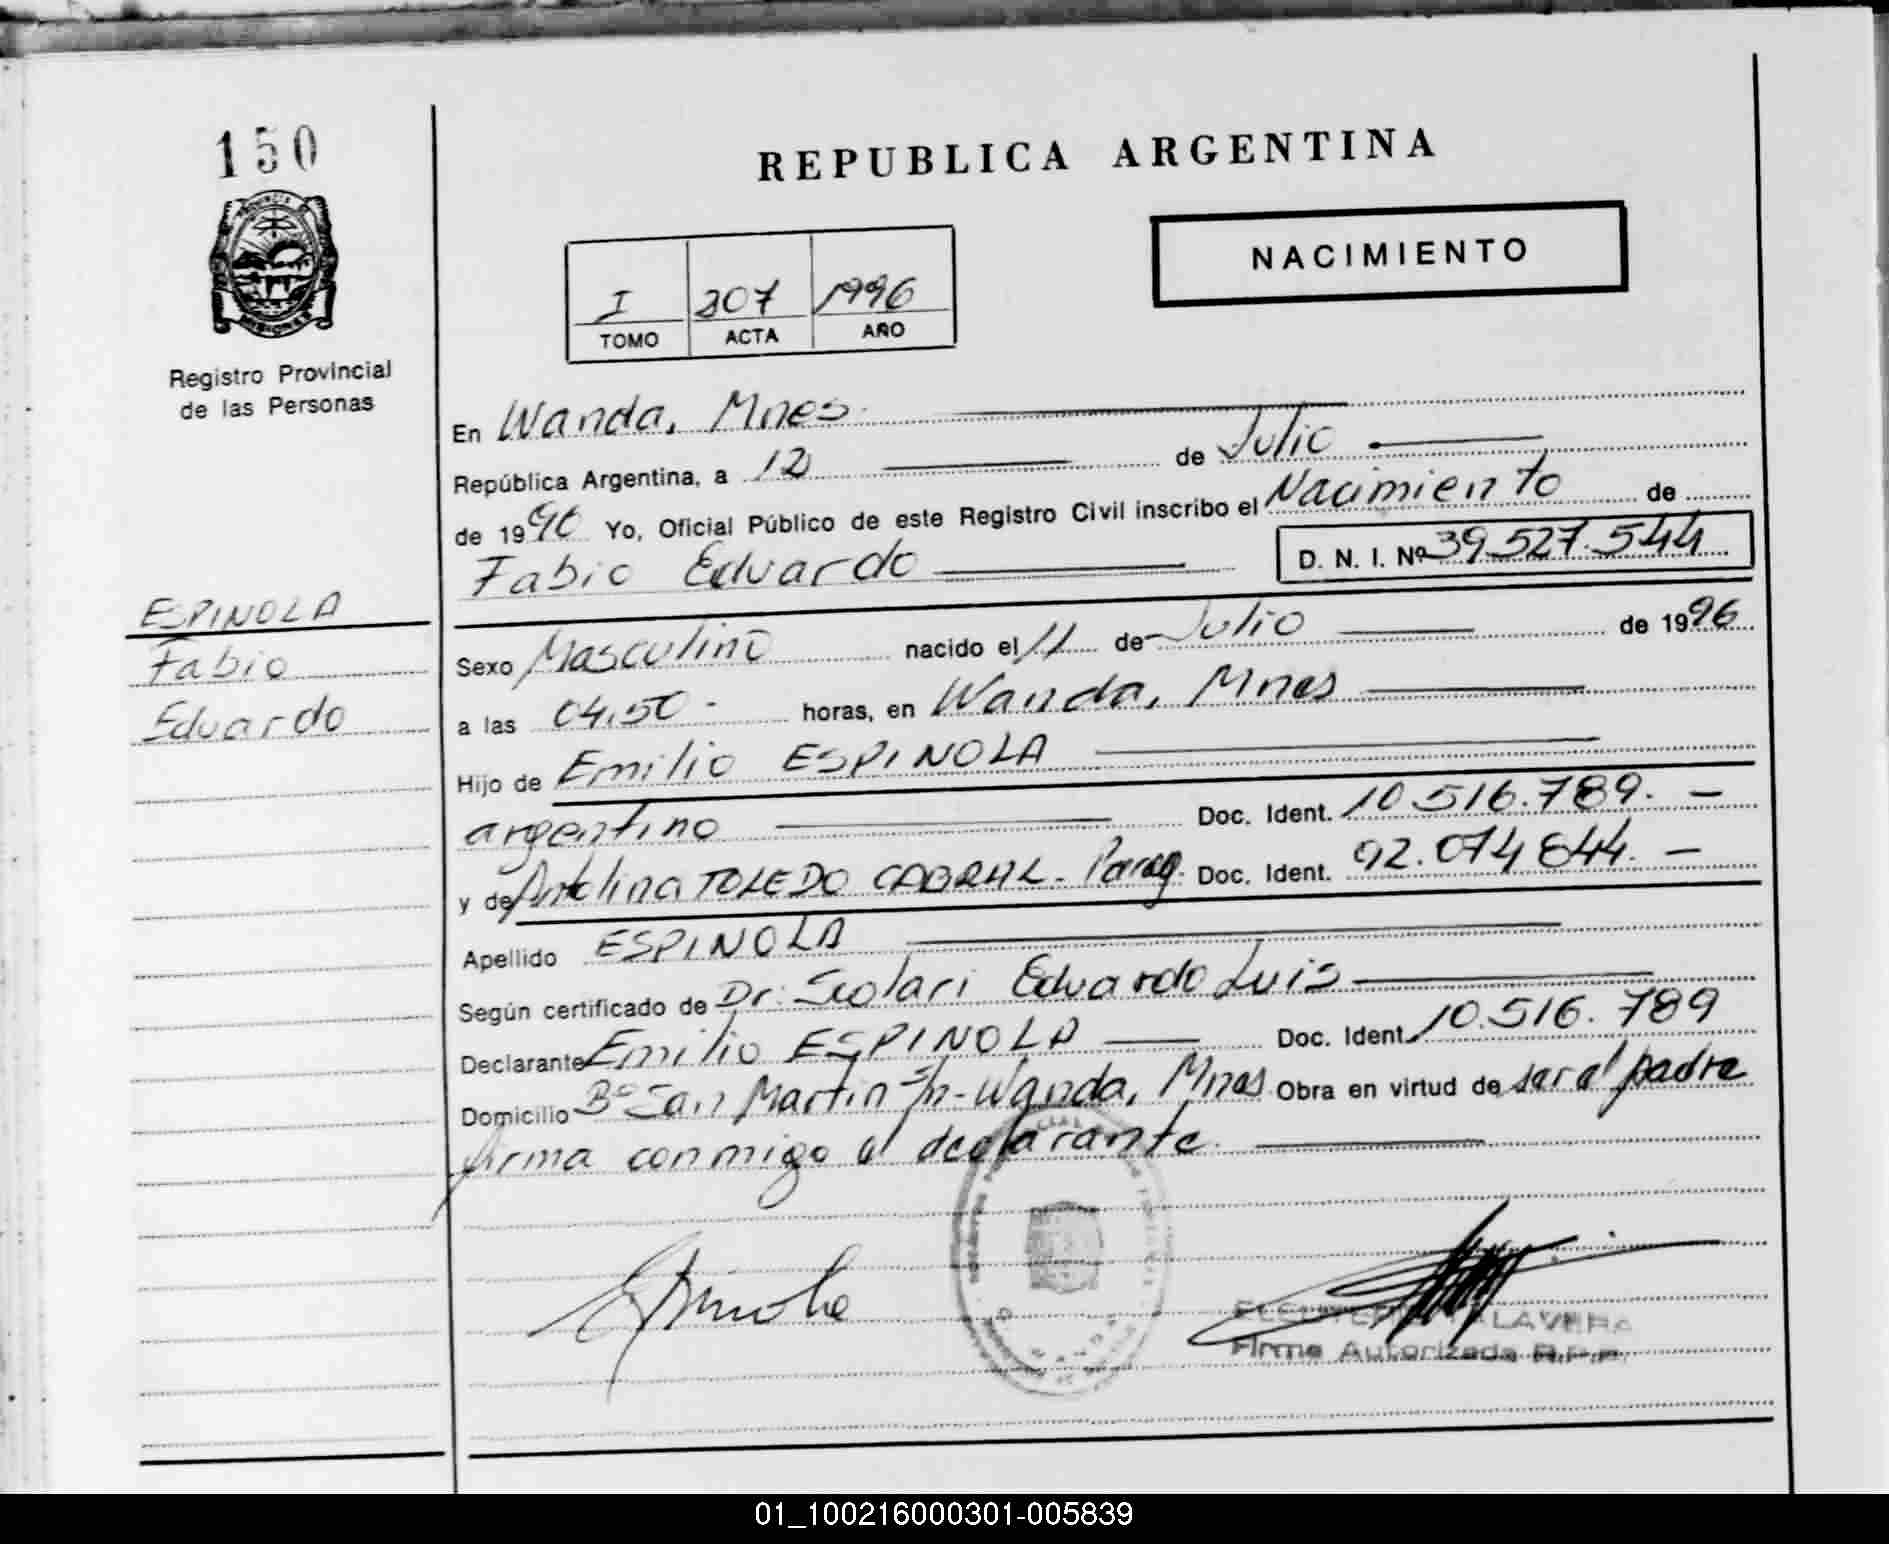 150
REPUBLICA ARGENTINA
NACIMIENTO
I 307 1996
TOMO ACTA AÑO
MISIONES
Registro Provincial
de las Personas
En Wanda, Mnes.
República Argentina, a 12 de Julio
de 1996 Yo, Oficial Público de este Registro Civil inscribo el Nacimiento de
Fabio Eduardo D. N. I. Nº 39.527.544
ESPINOLA
Fabio
Eduardo
Sexo Masculino nacido el 11 de Julio de 1996
a las 04,50 - horas, en Wanda, Mnes
Hijo de Emilio ESPINOLA
argentino Doc. Ident. 10.516.789. -
y de Antolina TOLEDO CABRAL - Parag. Doc. Ident. 92.074.644. -
Apellido ESPINOLA
Según certificado de Dr. Scolari Eduardo Luis
Declarante Emilio ESPINOLA Doc. Ident. 10.516.789
Domicilio Bº San Martin s/n - Wanda, Mnes Obra en virtud de ser el padre
firma conmigo el declarante.
Espinola
TALAVERA
Firma Autorizada R.P.P.
01_100216000301-005839